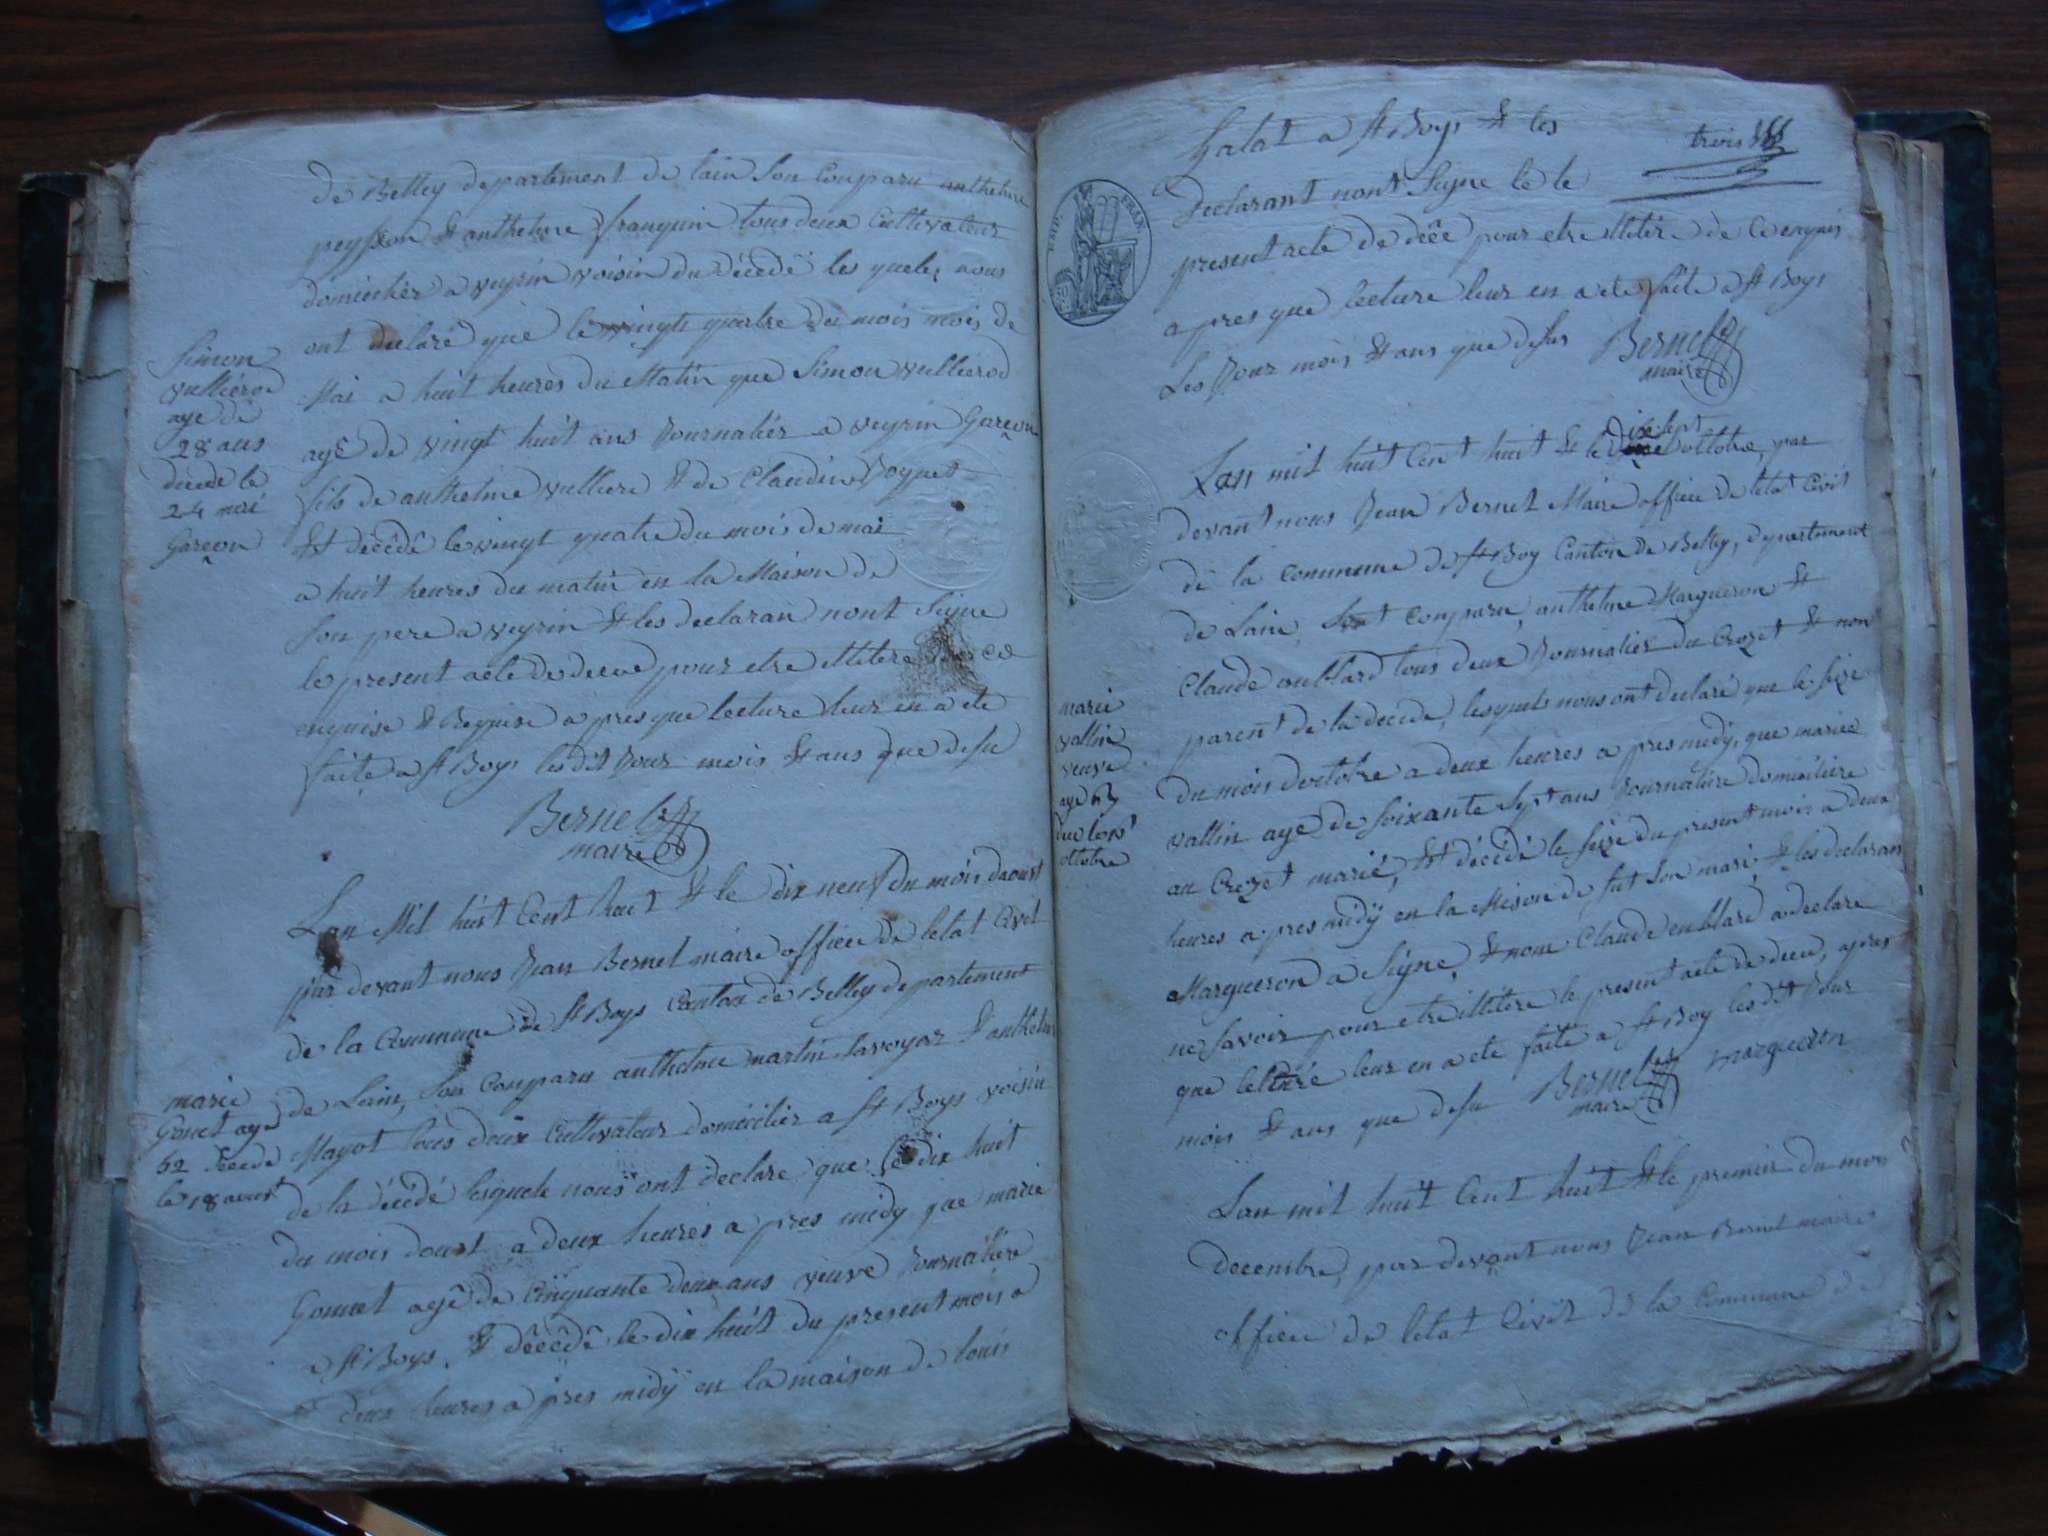 de Belley departement de lain Son Comparu anthelme
peysson & anthelme franquin tous deux Cultivateur
domicilier a veyrin voisin du décédé les quels nous
ont declaré que le vingts quatre du mois mois de
Mai a huit heures du Matin que Simon vullierod
agé de vingt huit ans Journalier a veyrin Garçon
fils de anthelme vulliere & de Claudine Joguet
Et décédé le vingt quatre du mois de mai
a huit heures du matin en la Maison de
Son pere a veyrin & les declaran nont Signe
le present acte de decee pour etre illitere
enquise & Requise a pres que lecture leur en a ete
faite a St Boys les dit Jour mois & ans que desu
Bernet
maire
Simon
vullierod
age de
28 ans
decede le
24 mai
Garçon
Lan Mil huit Cent huit & le dix neuf du mois daoust
par devant nous Jean Bernet maire officie de letat Civil
de la Commune de St Boys Canton de Belley departement
de Lain, Son Comparu anthelme martin Savoyar & anthelme
Mayot tous deux Cultivateur domicilier a St Boys voisin
de la décédé lesquele nous ont declare que le dix huit
du mois doust a deux heures a pres midy que marie
Gonnet agé de Cinquante deux ans veuve Journaliere
a St Boys. & décédé le dix huit du present mois a
deux heures a pres midy en la maison de louis
marie
Gonet age
52 decede
le 18 aoust
trois
Galat a St Boys & les
declarant nont Signe le le
present acte de décé pour etre illitere de Ce enquis
a pres que lecture leur en a ete faite a St Boys
Les Jour mois & ans que desus Bernet
maire
EMP. FRAN.
Lan mil huit Cent huit & le dix sept octobre, par
devant nous Jean Bernet Maire officie de letat Civil
de la Commune de St Boy Canton de Belley, departement
de Lain, Sont Comparu, anthelme Margueron &
Claude oubtard tous deux Journalier du Crozet & non
parent de la decede, lesquels nous ont declaré que le Seize
du mois doctobre a deux heures a pres midy, que mariee
vallin age de Soixante Sept ans Journaliere domiciliere
au Crozet marié, Et décédé le Seize du present mois a deux
heures a pres midy en la Meison de fut Son mari, & les declaran
Margueron a Signe, & nom Claude enblard a declare
ne Savoir pour etre illitere le present acte de deces, apres
que lecture leur en a ete faite a St Boy les dit Jour
mois & ans que desu Bernet margueron
maire
marie
vallin
veuve
age 67
octobre
Lan mil huit Cent huit & le premier du mois
decembre, par devant nous Jean Bernet maire
officie de letat Civil de la Commune de